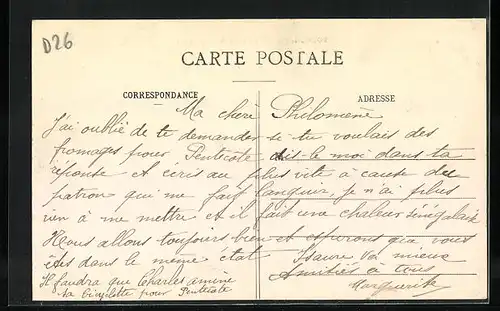 D26
CARTE POSTALE
CORRESPONDANCE
ADRESSE
Ma chère Philomène
J'ai oublié de te demander si tu voulais des
fromages pour Pentecote dis-le moi dans ta
réponse et écris au plus vite à cause du
patron qui me fait languir je n'ai plus
rien à me mettre et il fait une chaleur sénégalaise
Nous allons toujours bien et espérons que vous
êtes dans le même état va mieux
Il faudra que Charles amène Amitiés à tous
sa bicyclette pour Pentecote Marguerite